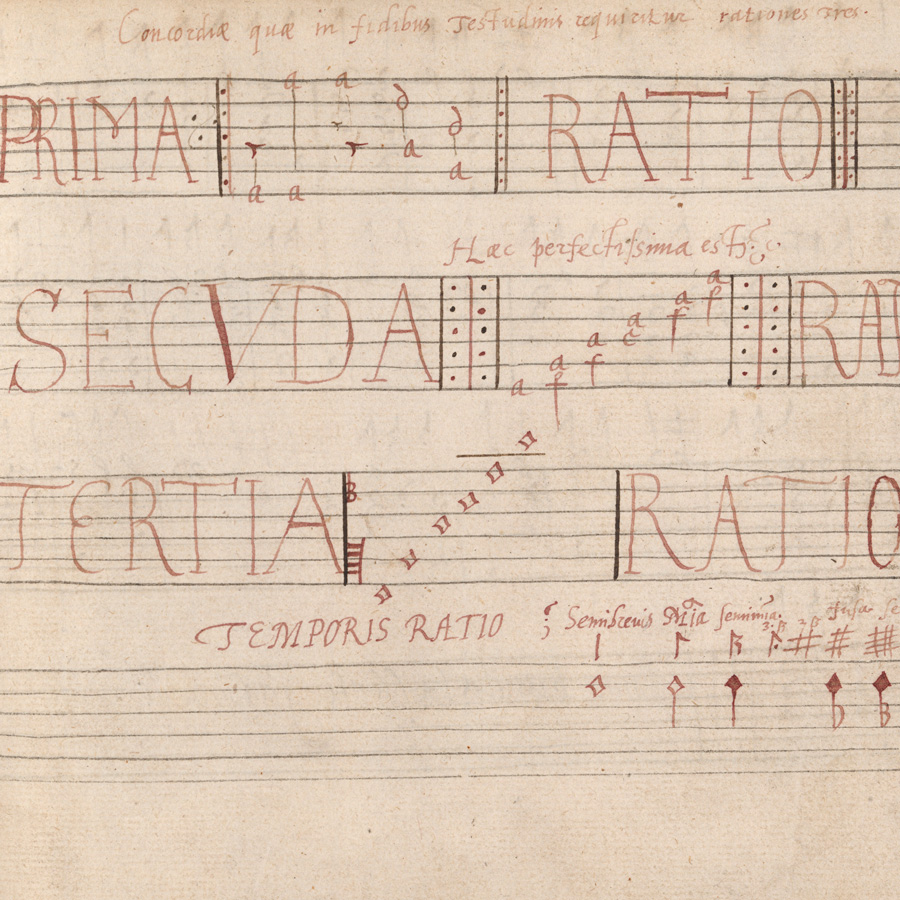 Concordiæ quæ in fidibus Testudinis requiritur rationes tres.
PRIMA RATIO
Hæc perfectissima est
SECVDA RAT
TERTIA RATIO
TEMPORIS RATIO Semibrevis Mīa semimīa. fusa se